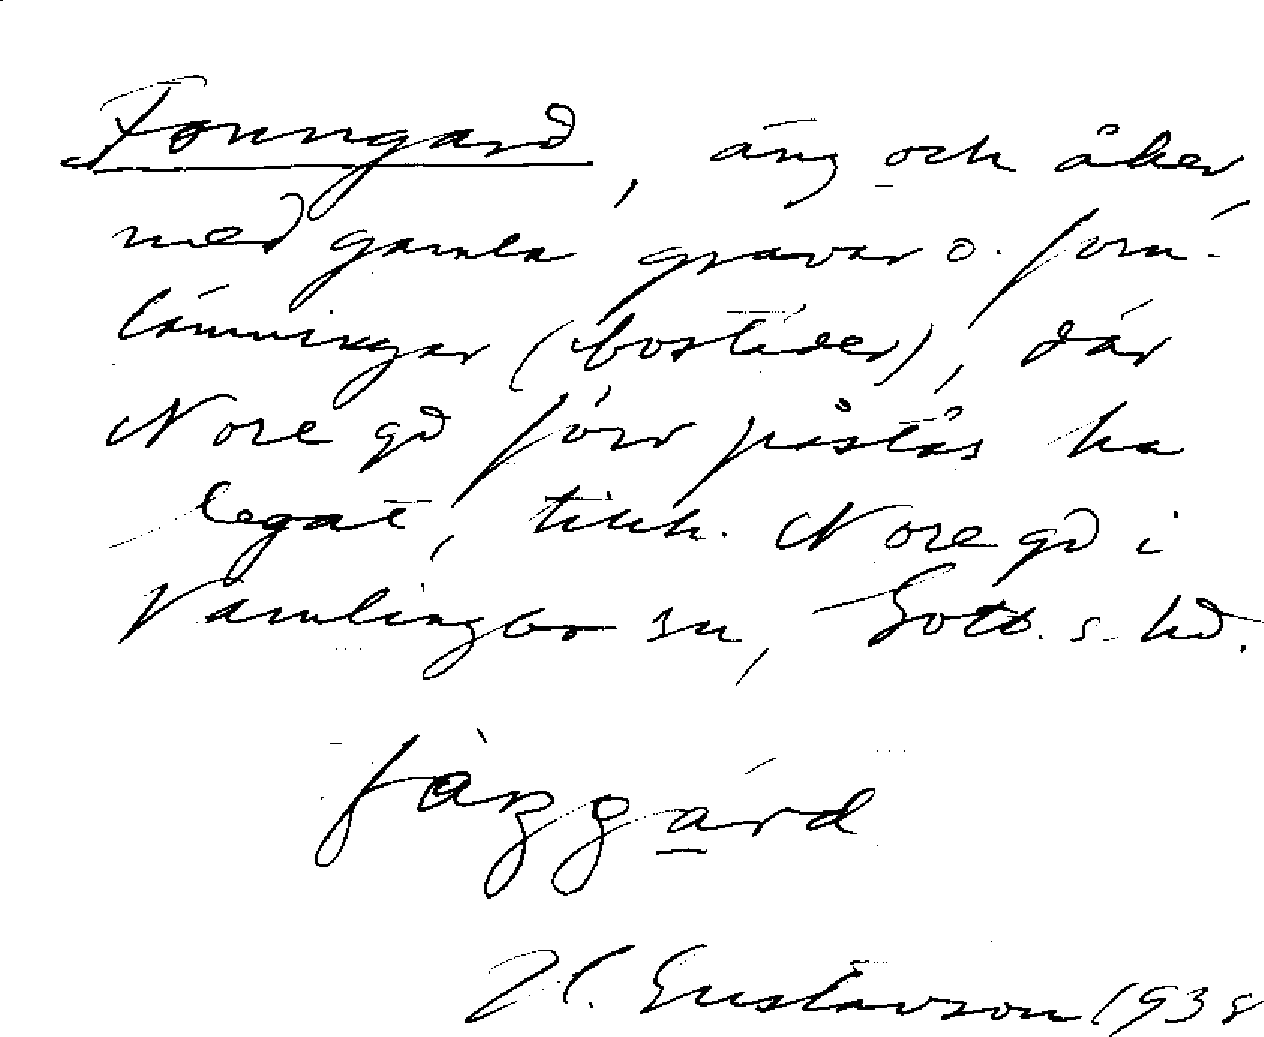 Fornngard, äng och åker
med gamla gravar o. forn-
lämningar (bostäder), där
Nore gd förr påstås ha
legat, tillh. Nore gd i
Vamlingbo sn, Gotl. s. hd.
fàŋgárd
H. Gustavson 1938